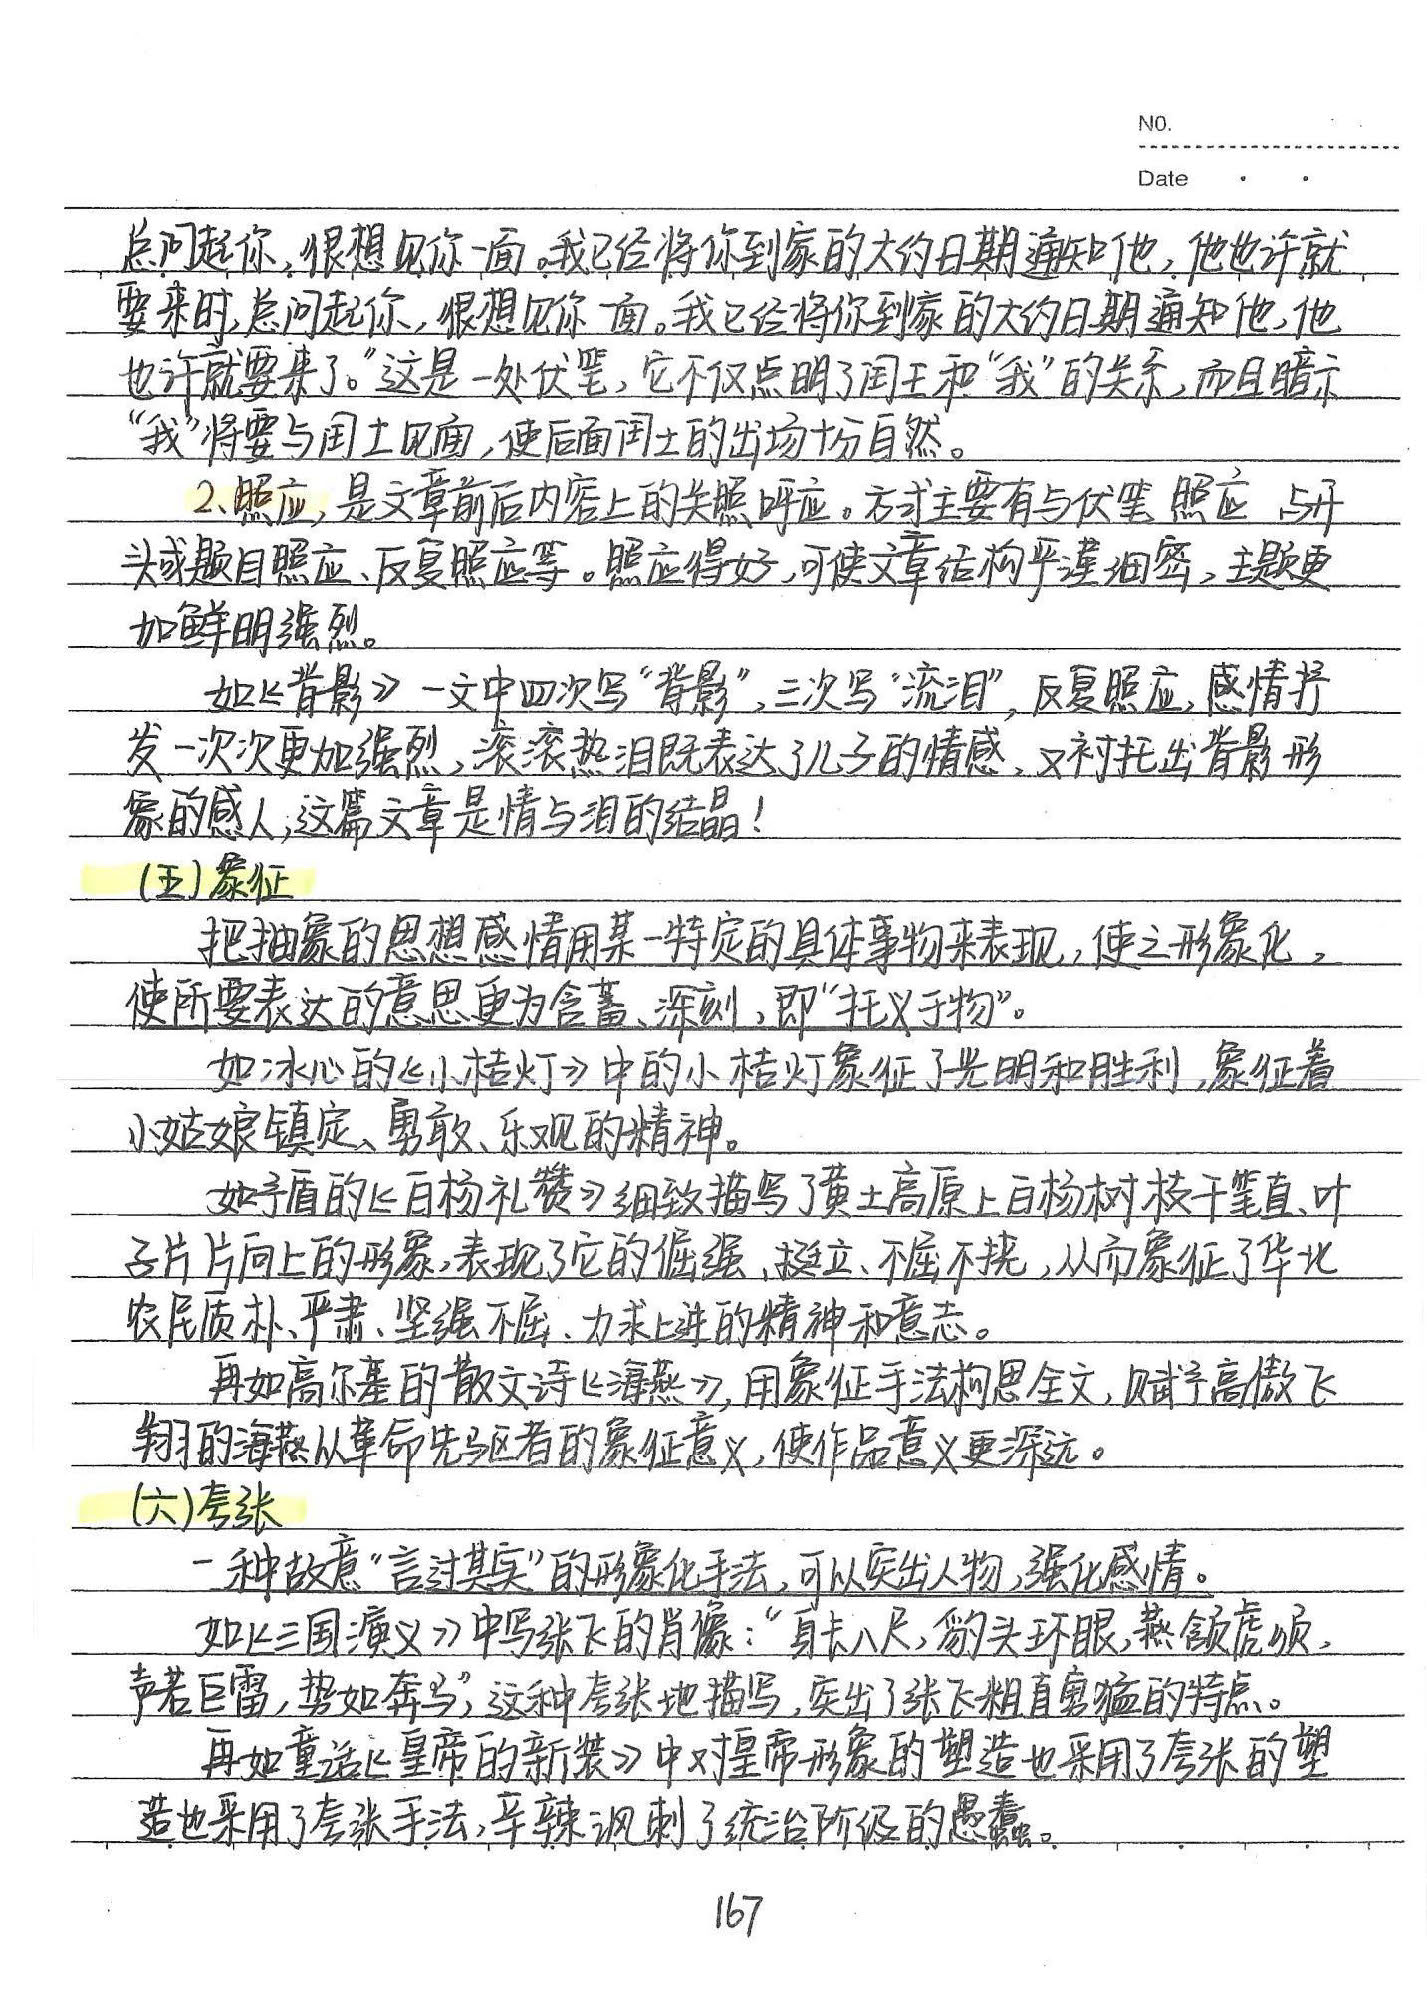 NO.
Date
总问起你，很想见你一面。我已经将你到家的大约日期通知他，他也许就
要来时，总问起你，很想见你一面。我已经将你到家的大约日期通知他，他
也许就要来了。"这是一处伏笔，它不仅点明了闰土和"我"的关系，而且暗示
"我"将要与闰土见面，使后面闰土的出场十分自然。
2、照应，是文章前后内容上的关照呼应。方式主要有与伏笔照应 与开
头或题目照应、反复照应等。照应得好，可使文章结构严谨细密，主题更
加鲜明强烈。
如《背影》一文中四次写"背影"，三次写"流泪"，反复照应，感情抒
发一次次更加强烈，滚滚热泪既表达了儿子的情感，又衬托出背影形
象的感人，这篇文章是情与泪的结晶！
(五)象征
把抽象的思想感情用某一特定的具体事物来表现，使之形象化，
使所要表达的意思更为含蓄、深刻，即"托义于物"。
如冰心的《小桔灯》中的小桔灯象征了光明和胜利，象征着
小姑娘镇定、勇敢、乐观的精神。
如矛盾的《白杨礼赞》细致描写了黄土高原上白杨树枝干笔直、叶
子片片向上的形象，表现了它的倔强、挺立、不屈不挠，从而象征了华北
农民质朴、严肃、坚强不屈、力求上进的精神和意志。
再如高尔基的散文诗《海燕》，用象征手法构思全文，赋予高傲飞
翔的海燕以革命先驱者的象征意义，使作品意义更深远。
(六)夸张
一种故意"言过其实"的形象化手法，可以突出人物，强化感情。
如《三国演义》中写张飞的肖像："身长八尺，豹头环眼，燕颔虎须，
声若巨雷，势如奔马"，这种夸张地描写，突出了张飞粗直勇猛的特点。
再如童话《皇帝的新装》中对皇帝形象的塑造也采用了夸张的塑
造也采用了夸张手法，辛辣讽刺了统治阶级的愚蠢。
167